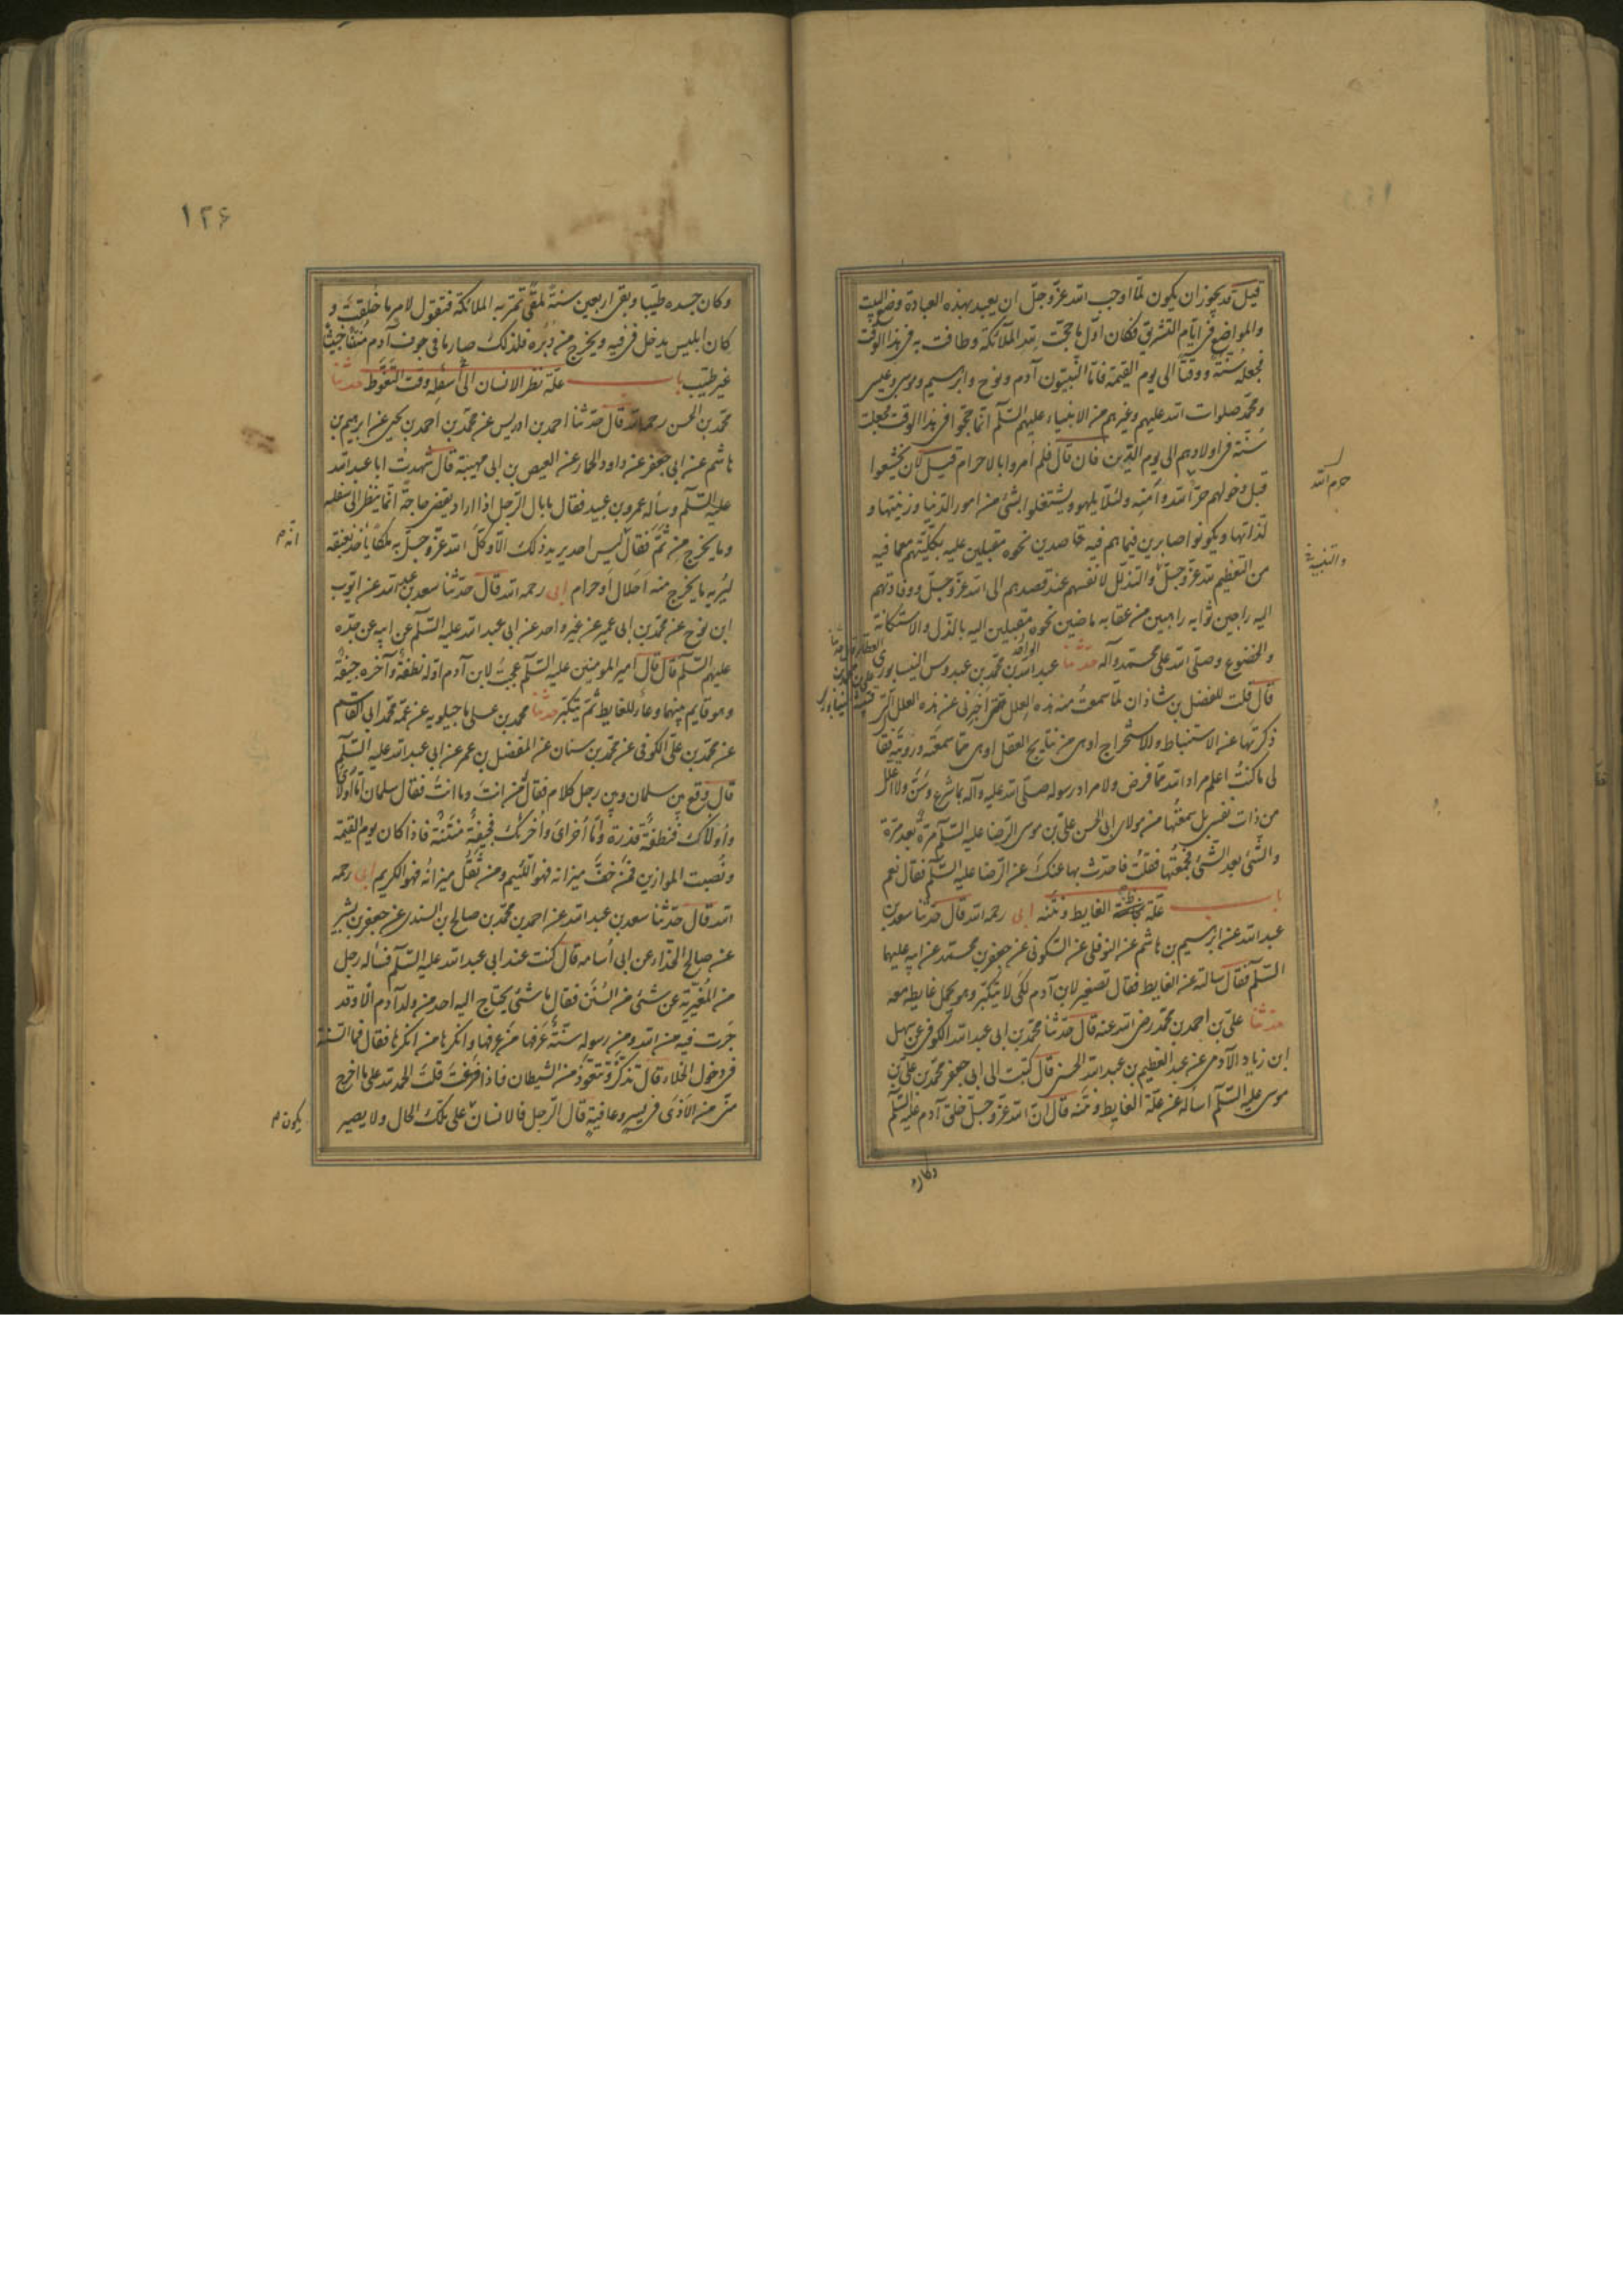 قيل قد يجوز ان يكون لما اوجب الله عزّ وجلّ ان يعبد بهذه العبادة وضع البيت
والمواضع فى ايّام التشريق فكان اوّل ما حجّت لله الملائكة وطافت به فى هذا الوقت
فجعله سُنّة ووقتاً الى يوم القيمة فامّا النبيّون آدم ونوح وابرهيم وموسى وعيسى
ومحمّد صلوات الله عليهم وغيرهم من الانبياء عليهم السّلم انّما حجّوا فى هذا الوقت فجعلت
سُنّة فى اولادهم الى يوم الدّين فان قال فلم اُمروا بالاحرام قيل لان يخشعوا
قبل دخولهم حرم الله وامنه ولئلّا يلهو ويشتغلوا بشئ من امور الدّنيا وزينتها و
لذّاتها ويكونوا صابرين فيما هم فيه قاصدين نحوه مقبلين عليه بكلّيّتهم مع ما فيه
من التعظيم لله عزّ وجلّ والتذلّل لانفسهم عند قصدهم الى الله عزّ وجلّ ووفادتهم
اليه راجين ثوابه راهبين من عقابه ماضين نحوه مقبلين اليه بالذّل والاستكانة
والخضوع وصلّى الله على محمّد وآله حدّثنا عبد الواحد بن محمّد بن عبدوس النيسابورى
قال قلت للفضل بن شاذان لما سمعتُ منه هذه العلل اخبرنى عن هذه العلل التى
ذكرتَها عن الاستنباط والاستخراج اوهى من نتايج العقل اوهى ممّا سمعتَه ورويتَه فقا
لى ماكنتُ اعلم مراد الله ممّا فرض ولا مراد رسوله صلّى الله عليه وآله بما شرع وسَنّ ولا اعلّل
من ذات نفسى بل سمعتُها من مولاى ابى الحسن علىّ بن موسى الرّضا عليه السّلم مرّةً بعد مرّة
والشّئ بعد الشّئ فجمعتُها فقلتُ فاحدّث بها عنك عن الرّضا عليه السّلم فقال نعم
باب علّة الغايط ونتنه ابى رحمه الله قال حدّثنا سعد بن
عبد الله عن ابرهيم بن هاشم عن النوفلى عن السّكونى عن جعفر بن محمّد عن ابيه عليهما
السّلم فقال سالته عن الغايط فقال تصغير لابن آدم لكى لا يتكبّر وهو يحمل غايطه معه
حدّثنا علىّ بن احمد بن محمّد رضى الله عنه قال حدّثنا محمّد بن ابى عبد الله الكوفى عن سهل
ابن زياد الآدمى عن عبد العظيم بن عبد الله الحسنى قال كتبت الى ابى جعفر محمّد بن علىّ بن
موسى عليه السّلم اسأله عن علّة الغايط ونتنه قال انّ الله عزّ وجلّ خلق آدم عليه السّلم
وكان
حرم الله
العطّار قال حدّثنا
علىّ بن محمّد بن
قتيبة النيسابورى
١٢٦
وكان جسده طيّبا وبقى اربعين سنةً ملقىً تمرّ به الملائكة فتقول لامرٍ ما خُلقتَ و
كان ابليس يدخل فى فيه ويخرج من دُبُره فلذلك صار ما فى جوف آدم مُنتناً خبيثاً
غير طيّب باب علّة نظر الانسان الى سُفله وقت التغوّط حدّثنا
محمّد بن الحسن رحمه الله قال حدّثنا احمد بن ادريس عن محمّد بن احمد بن يحيى عن ابرهيم بن
هاشم عن ابى جعفر عن داود الجمّار عن العيص بن ابى مهينة قال شهدتُ ابا عبد الله
عليه السّلم وسأله عمرو بن عبيد فقال ما بال الرّجل اذا اراد يقضى حاجةً انّما ينظر الى سفله
وما يخرج من ثَمّ فقال ليس احد يريد ذلك الّا وكلّ الله عزّ وجلّ به ملكاً ياخذ بعنقه
ليُريه ما يخرج منه اَحَلال او حرام ابى رحمه الله قال حدّثنا سعد بن عبد الله عن ايّوب
ابن نوح عن محمّد بن ابى عمير عن غير واحد عن ابى عبد الله عليه السّلم عن ابيه عن جدّه
عليهم السّلم قال قال امير المومنين عليه السّلم عجبتُ لابن آدم اوّله نطفةٌ وآخره جيفةٌ
وهو قايم بينهما وعاءٌ للغايط ثمّ يتكبّر حدّثنا محمد بن على ماجيلويه عن عمّه محمّد ابى القاسم
عن محمّد بن علىّ الكوفى عن محمّد بن سنان عن المفضل بن عمر عن ابى عبد الله عليه السّلم
قال وقع بين سلمان وبين رجل كلام فقال مَن انتَ وما انتَ فقال سلمان امّا اُولاى
واُولاك فنطفةٌ قذرة وامّا اُخراى واُخراك فجيفةٌ منتنةٌ فاذا كان يوم القيمة
ونُصبت الموازين فمن خفّ ميزانه فهو اللئيم ومن ثقل ميزانه فهو الكريم ابى رحمه
الله قال حدّثنا سعد بن عبد الله عن احمد بن محمّد بن صالح بن السندى عن جعفر بن بشير
عن صالح الحذّاء عن ابى اُسامه قال كنت عند ابى عبد الله عليه السّلم فسأله رجل
من المُغيريّة عن شئ من السُنَن فقال ما شئ يحتاج اليه احد من ولد آدم الّا وقد
جَرَت فيه من الله ومن رسوله سنّةٌ عَرَفها من عرفها وانكرها من انكرها فقال فما السّنة
فى دخول الخلاء قال تذكر وتتعوّذ من الشيطان فاذا فرغتَ قلتَ الحمد لله على ما اخرج
منّى من الاَذى فى يسرٍ وعافيةٍ قال الرّجل فالانسان على تلك الحال ولا يصير
انّه م
يكون م